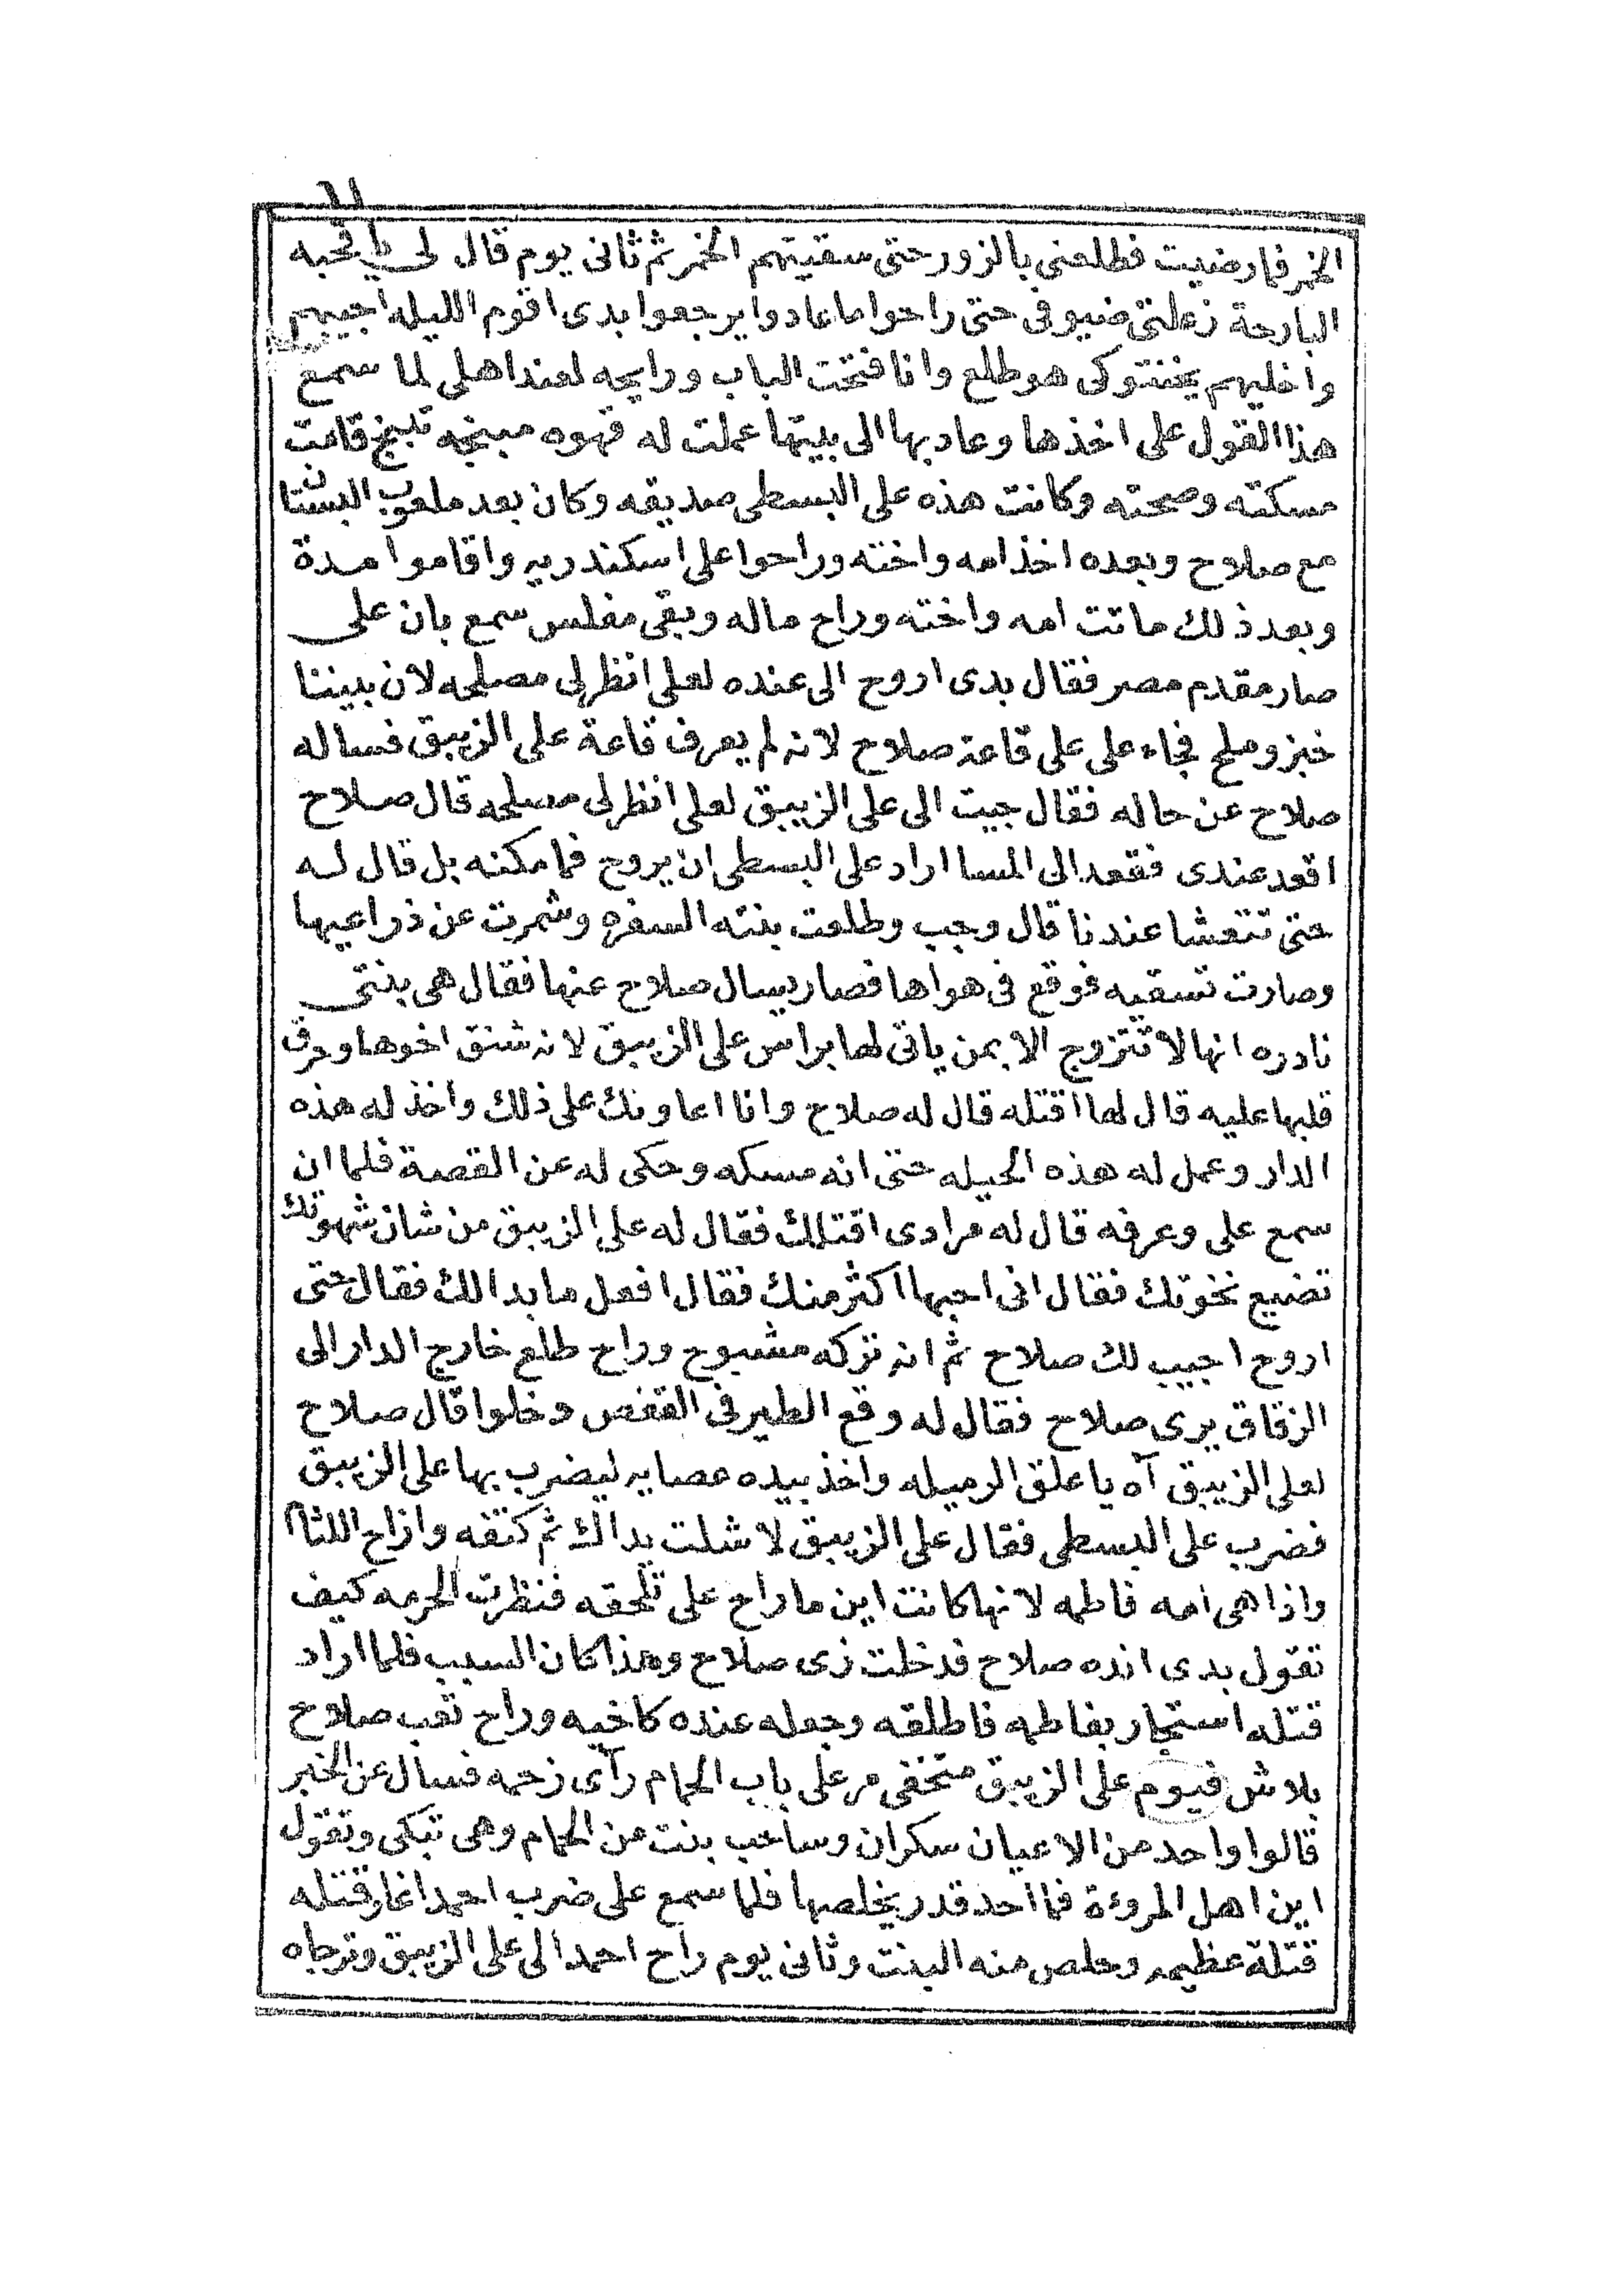 ٦١
الخمر فما رضيت فطلعني بالزور حتى سقيتهم الخمر ثم ثاني يوم قال لي يا قحبه
البارحة زعلتي ضيوفي حتى راحوا ما عادوا يرجعوا بدى اقوم الليله اجيبهم
واخليهم يخنتوكى هو طلع وانا فتحت الباب ورايحه لعند اهلى لما سمع
هذا القول على اخذها وعاد بها الى بيتها عملت له قهوه مبنجه تبنج قامت
مسكته وصحته وكانت هذه على البسطى صديقه وكان بعد ملعوب البستان
مع صلاح وبعده اخذ امه واخته وراحوا على اسكندريه واقاموا مدة
وبعد ذلك ماتت امه واخته وراح ماله وبقى مفلس سمع بان على
صار مقدم مصر فقال بدى اروح الى عنده لعلى انظر لى مصلحه لان بيننا
خبز وملح فجاء على على قاعة صلاح لانه لم يعرف قاعة على الزيبق فساله
صلاح عن حاله فقال جيت الى على الزيبق لعلى انظر لى مسلحه قال صلاح
اقعد عندى فقعد الى المسا اراد على البسطى ان يروح فما مكنه بل قال له
حتى تتعشا عندنا قال وجب وطلعت بنته السفره وشمرت عن ذراعيها
وصارت تسقيه فوقع فى هواها فصار يسال صلاح عنها فقال هى بنتى
نادره انها لا تتزوج الا بمن ياتى لها براس على الزيبق لانه شنق اخوها وحرق
قلبها عليه قال لها اقتله قال له صلاح وانا اعاونك على ذلك واخذ له هذه
الدار وعمل له هذه الحيله حتى انه مسكه وحكى له عن القصة فلما ان
سمع على وعرفه قال له مرادى اقتلك فقال له على الزيبق من شان شهوتك
تضيع نخوتك فقال انى احبها اكثر منك فقال افعل ما بدالك فقال حتى
اروح اجيب لك صلاح ثم انه تركه مشبوح وراح طلع خارج الدار الى
الزقاق يرى صلاح فقال له وقع الطير فى القفص دخلوا قال صلاح
لعلى الزيبق آه يا علق الرميله واخذ بيده عصايه ليضرب بها على الزيبق
فضرب على البسطى فقال على الزيبق لا شلت يداك ثم كتفه وازاح اللثام
واذا هى امه فاطمه لانها كانت اين ما راح على تلحقه فنظرت الحرمه كيف
تقول بدى انده صلاح فدخلت زى صلاح وهذا كان السبب فلما اراد
قتله استجار بفاطمه فاطلقه وجعله عنده كاخيه وراح تعب صلاح
بلاش فيوم على الزيبق متخفى مر على باب الحمام رآى زحمه فسال عن الخبر
قالوا واحد من الاعيان سكران وساحب بنت من الحمام وهى تبكى وتقول
اين اهل المروءة فما احد قدر يخلصها فلما سمع على ضرب احمد اغا وقتله
قتلة عظيمه وخلص منه البنت وثانى يوم راح احمد الى على الزيبق وترجاه